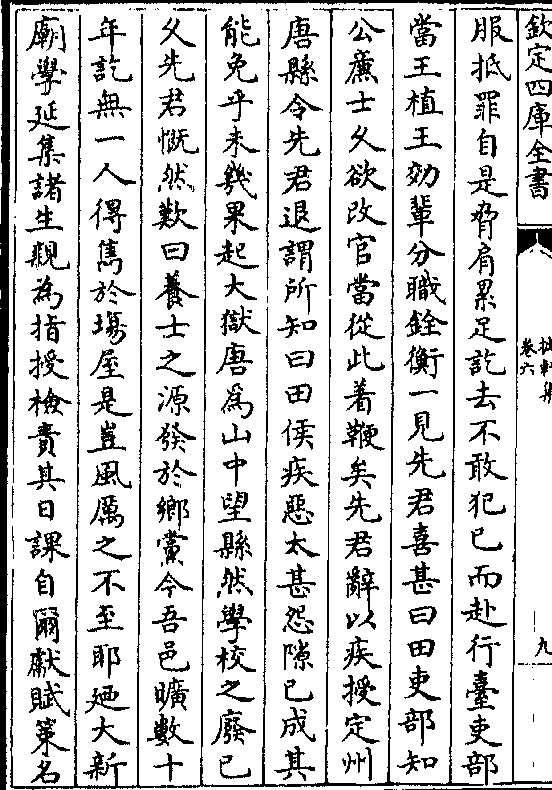 欽定四庫全書
卷六
九
服抵罪自是脅肩累足訖去不敢犯已而赴行臺吏部
當王植王効輩分職銓衡一見先君喜甚曰田吏部知
公廉士久欲改官當從此着鞭矣先君辭以疾授定州
唐縣令先君退謂所知曰田侯疾惡太甚怨隙已成其
能免乎未幾果起大獄唐爲山中望縣然學校之廢已
久先君慨然歎曰養士之源發於鄉黨今吾邑曠數十
年訖無一人得雋於塲屋是豈風厲之不至耶廼大新
廟學延集諸生親為指授檢責其日課自爾獻賦策名